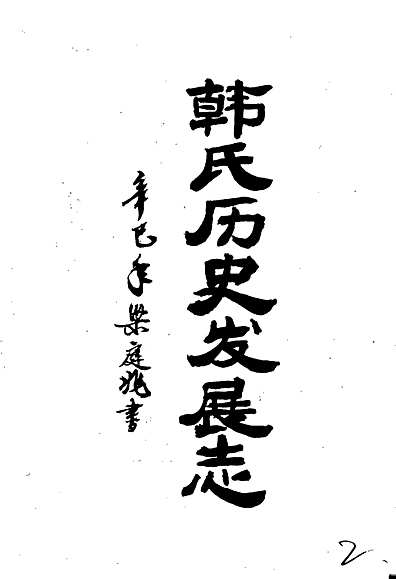 韩氏历史发展志
辛巳年梁庭兆书
2